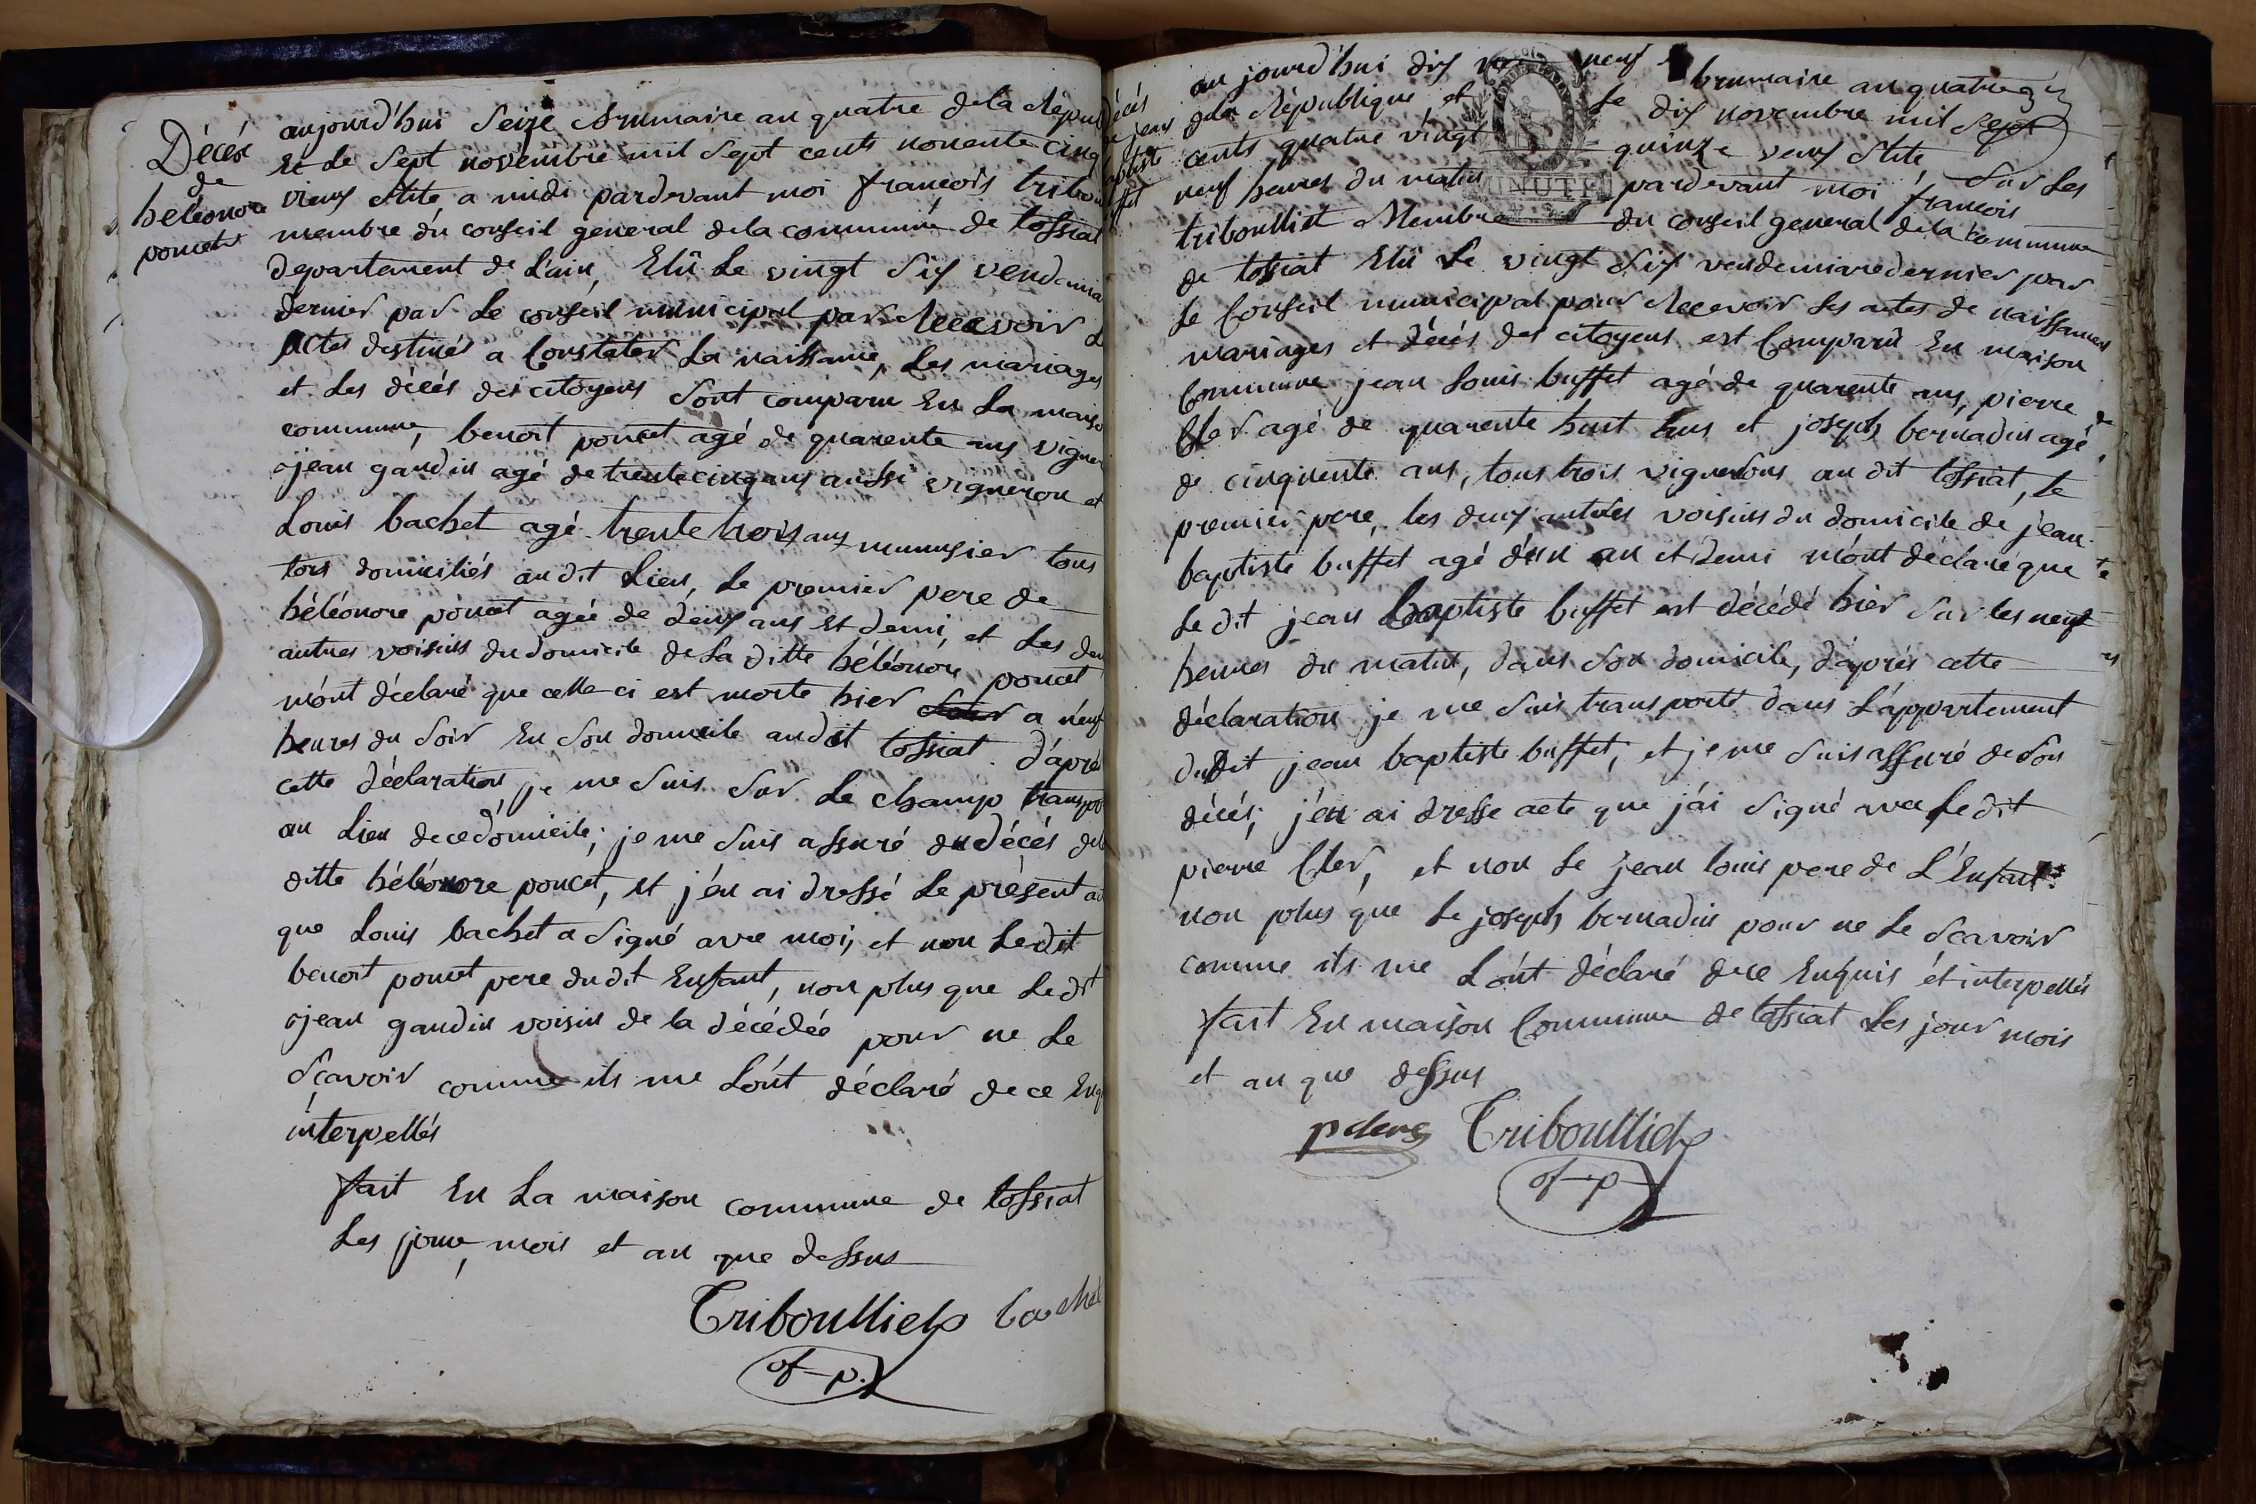 Décés
de
héléonore
poncet
aujourd'hui Seize brumaire an quatre de la Répu
Et Le Sept novembre mil Sept cents nonente cinq
vieux Stile a midi pardevant moi francois tribou
membre du conseil general de la commune de tossiat
departement de L'ain, Elû Le vingt Six vendemia
dernier par Le conseil municipal par Recevoir L
Actes destinés a Constater La naissance, Les mariages
et Les décés des citoyens Sont comparu En La maiso
commune, benoit poncet agé de quarente ans vigner
jean gaudin agé de trente cinq ans aussi vigneron et
Louis bachet agé trente trois ans menusier tous
tois domiciliés au dit Lieu, Le premier pere de
héléonore poncet agée de deux ans Et demi, et Les deu
autres voisins du domicile de La ditte héléonore poncet
m'ont déclaré que celle ci est morte hier a neuf
heures du Soir En Son domicile au dit tossiat. d'aprés
cette déclaration je me Suis Sur Le champ transpor
au Lieu de ce domicile; je me Suis assuré du décés de
ditte héléonore poncet, et j'en ai dressé Le présent ac
que Louis bachet a Signé avec moi, et non Le dit
benoit poncet pere du dit Enfant, non plus que Le dit
jean gaudin voisin de la décédée pour ne Le
Sçavoir comme ils me L'ont déclaré de ce Enq
interpellés
fait En La maison commune de tossiat
Les jour, mois et an que dessus
Triboulliet bachet
of-p.
écés
jean
ptiste
ffet
aujourd'hui dix neuf brumaire an quatre
de la République, et Le dix novembre mil Sept
cents quatre vingt quinze veux Stile Sur Les
neuf heures du matin pardevant moi francois
triboulliet Membre du conseil general de la commune
de tossiat Elû Le vingt Six vendemiare dernier par
Le Conseil municipal pour Recevoir Les actes de naissances
mariages et décés des citoyens est Comparû En maison
Commune jean Louis buffet agé de quarente ans, pierre
Cler agé de quarente huit ans et joseph bernadin agé
de cinquente ans, tous trois vignerons au dit tossiat, Le
premier pere, les deux autres voisins du domicile de jean
baptiste buffet agé d'un an et demi m'ont déclaré que
Le dit jean baptiste buffet est décédé hier Sur les neuf
heures du matin, dans Son domicile, d'aprés cette
déclaration je me Suis transporté dans L'appartement
dudit jean baptiste buffet, et je me Suis assuré de Son
décés; j'en ai dresse acte que j'ai Signé avec Le dit
pierre Cler, et non Le jean Louis pere de L'Enfant
non plus que Le joseph bernadin pour ne Le Scavoir
comme ils me L'ont déclaré de ce Enquis et interpellés
fait En maison Commune de tossiat Les jour mois
et an que dessus
p clerc Triboulliet
of-p
MINUTE